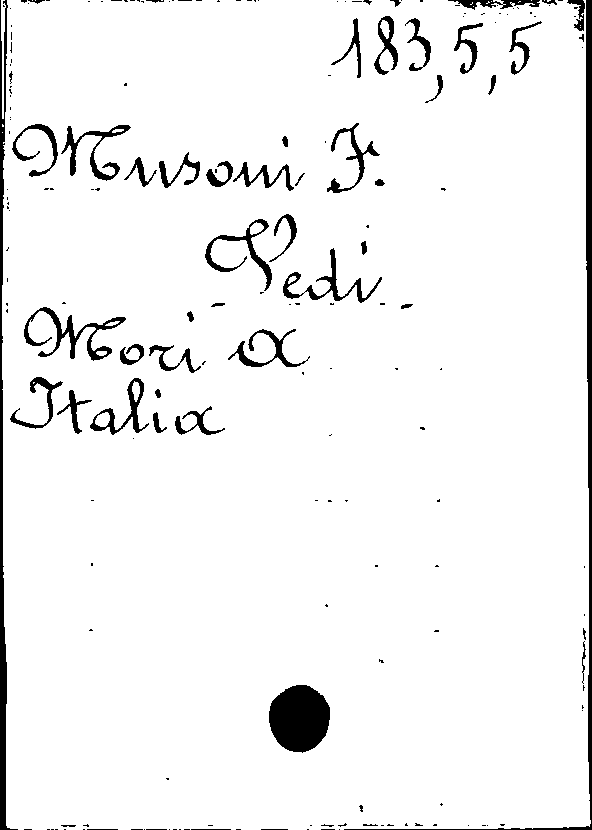 183,5,5
Musoni F.
Vedi
Mori A
Italia